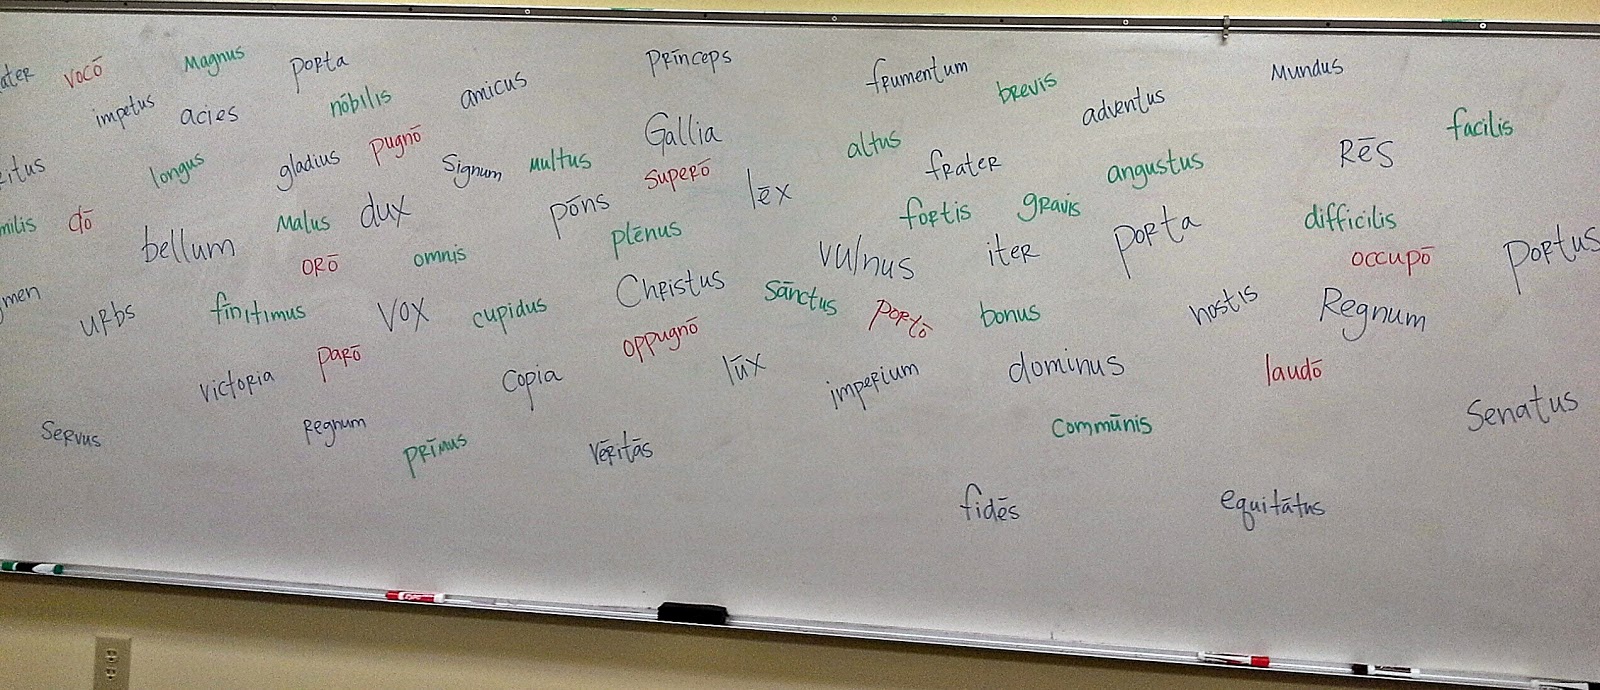 vocō
Magnus
porta
Prīnceps
frumentum
brevis
Mundus
impetus
acies
nōbilis
amicus
adventus
facilis
longus
gladius
pugnō
Signum
multus
Gallia
superō
altus
frater
angustus
Rēs
dō
bellum
Malus
dux
pōns
lēx
fortis
gravis
porta
difficilis
orō
omnis
plēnus
vulnus
iter
occupō
portus
urbs
fīnitimus
vox
cupidus
Christus
sānctus
portō
bonus
hostis
Regnum
victoria
parō
copia
oppugnō
lūx
imperium
dominus
laudō
Servus
Regnum
prīmus
vēritās
commūnis
Senatus
fidēs
equitātus